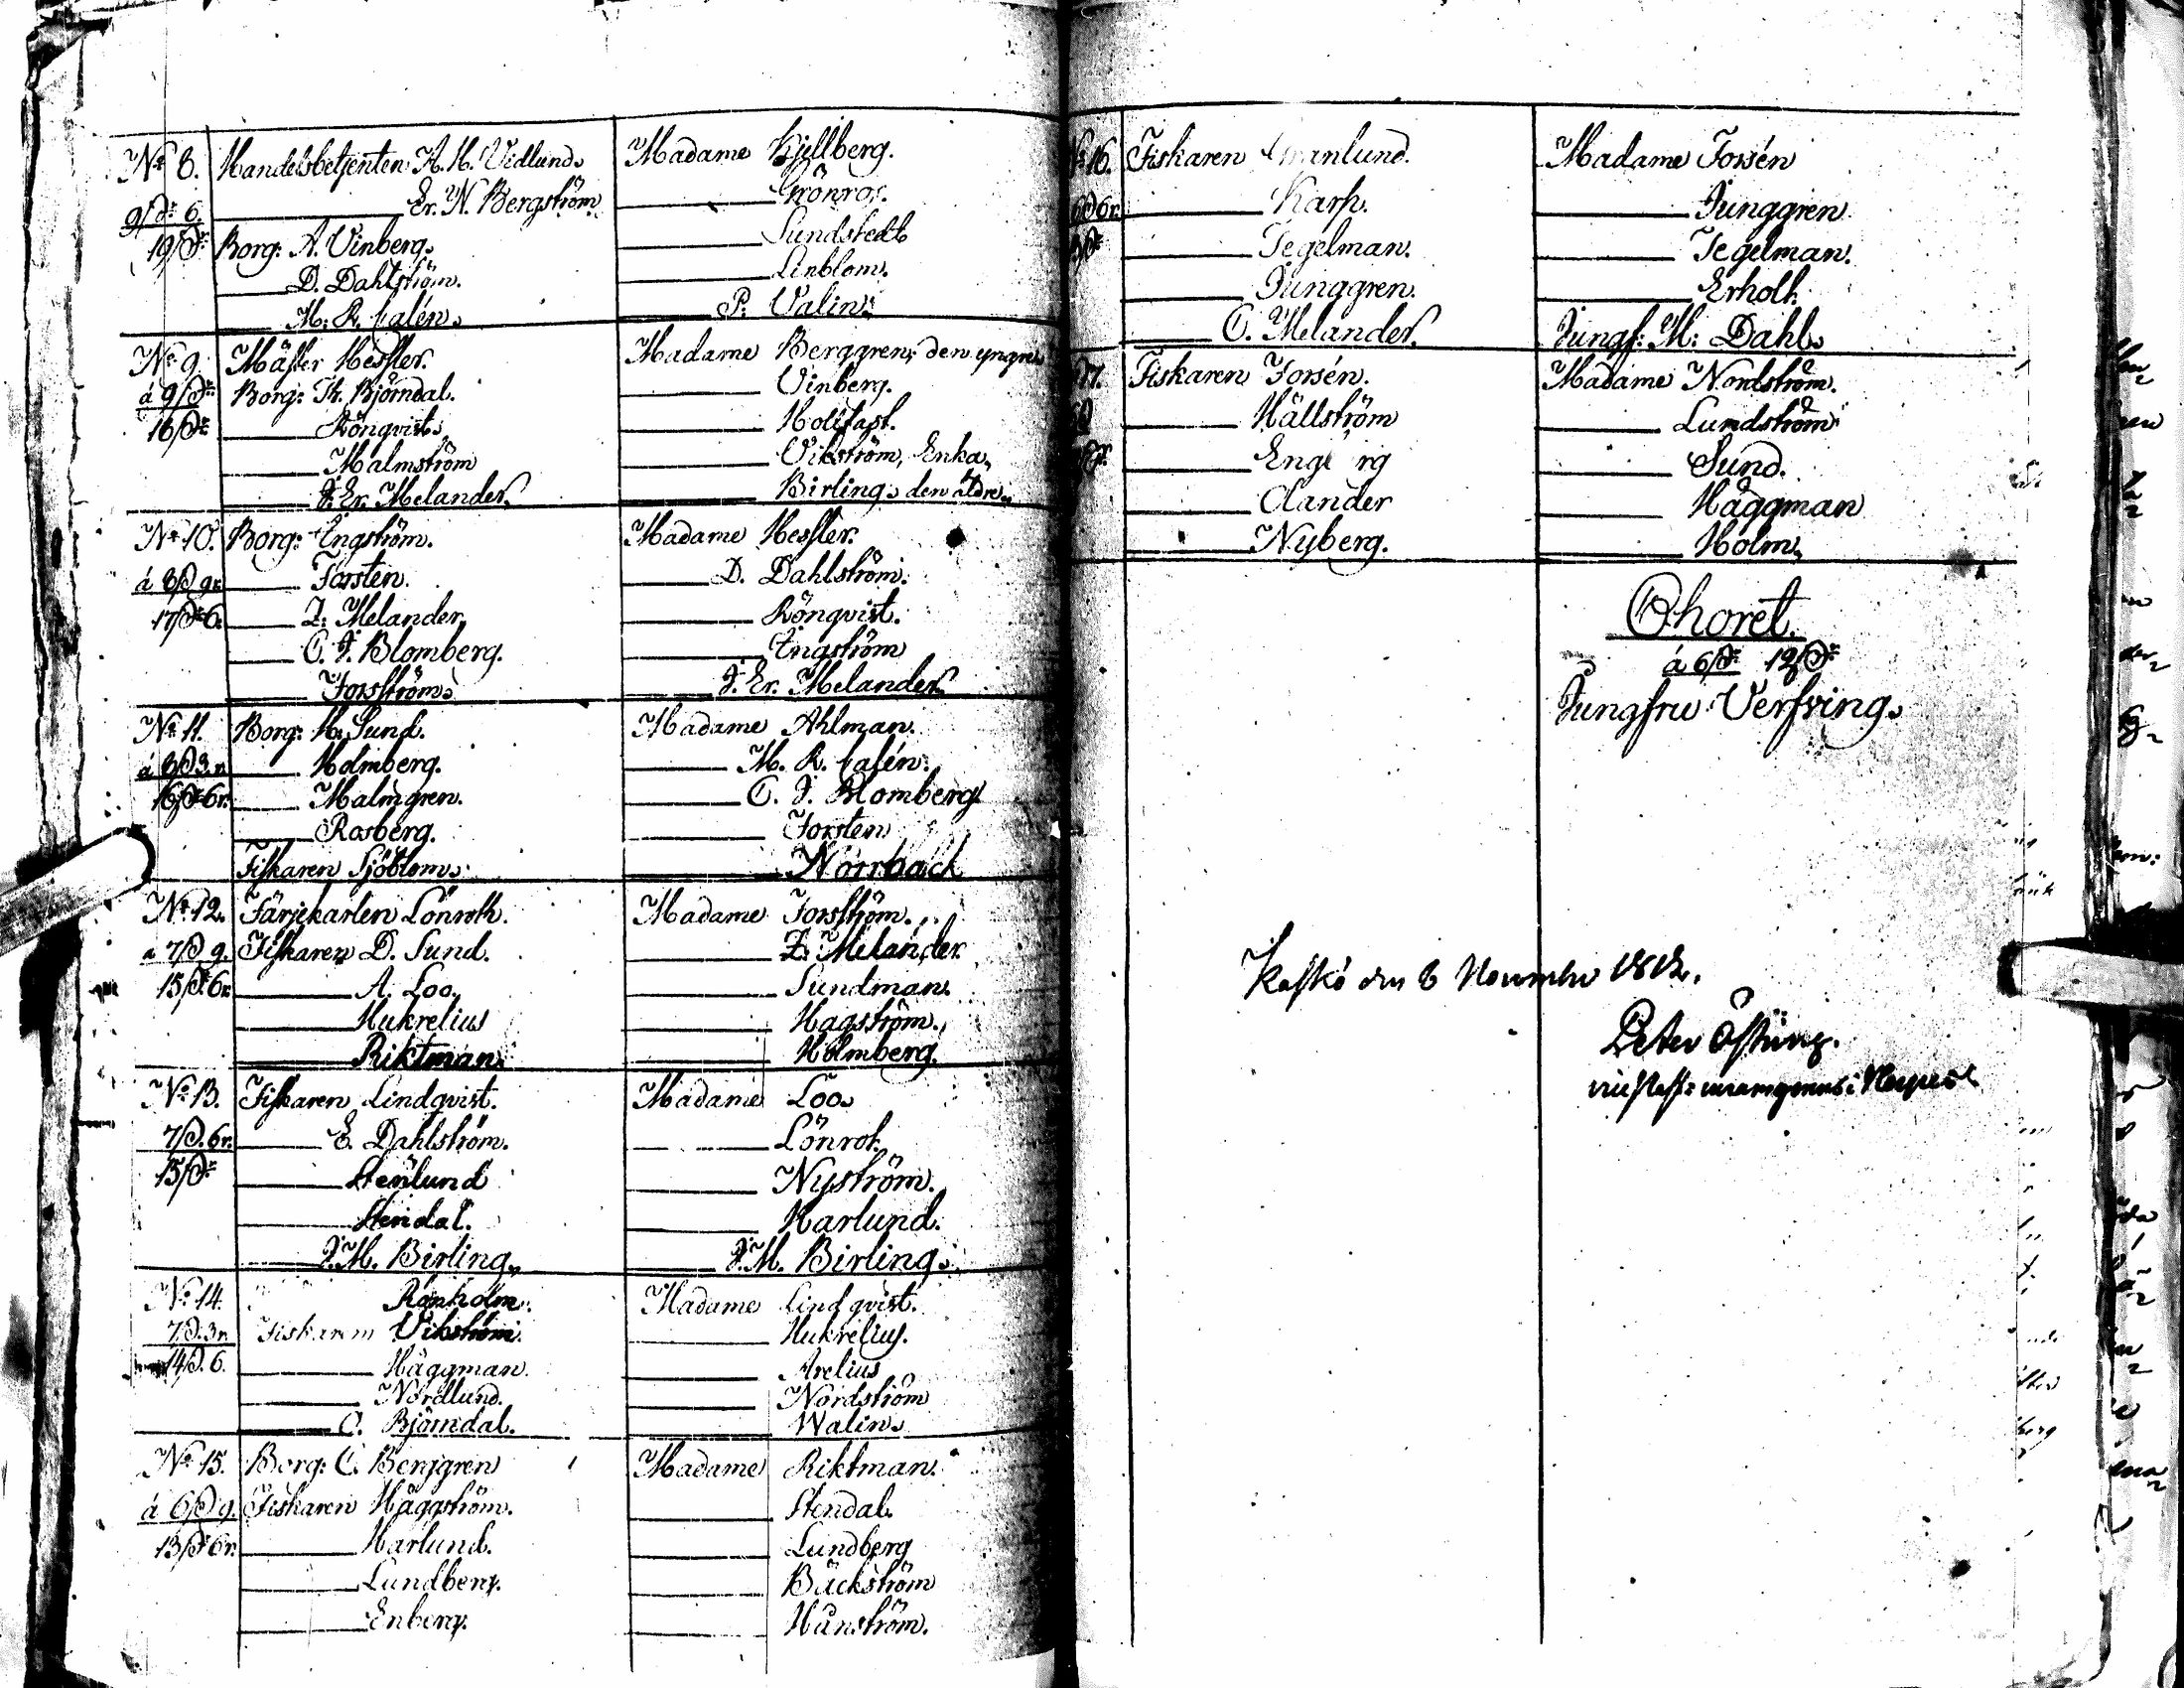 No 8. Handelsbetjenten A. H. Vidlund. Madame Kjellberg.
Er. N. Bergström. Grönros.
9 6.
19 Borg: A. Vinberg. Sundstedt
D. Dahlström. Linblom.
M. R. Calén. P. Valin.
No 9. Mäster Hessler. Madame Berggren, den yngre
á 9 Borg: Th. Björndal. Vinberg.
16 Rönqvist. Holffast.
Malmström Vikström, Enka.
J. Er. Melander. Birling den äldre.
No 10. Borg: Engström. Madame Hessler.
á 8 9r. Forsten. D. Dahlström.
17 6. Z. Melander. Rönqvist.
C. J. Blomberg. Engström
Forsström. J. Er. Melander.
No 11. Borg: H. Sund. Madame Ahlman.
á 8 3r. Holmberg. M. R. Calén.
16 6r. Malmgren. C. J. Blomberg
Rosberg. Forsten
Fiskaren Sjöblom. Norrback
No 12. Färjekarlen Lönroth. Madame Forsström.
á 7 9. Fiskaren D. Sund. Z. Melander.
15 6r. A. Loo. Sundman.
Hukrelius Hagström.
Riktman. Holmberg.
No 13. Fiskaren Lindqvist. Madame Loo.
7 6r. E. Dahlström. Lönrot.
15 Stenlund Nyström.
Stendal. Harlund.
J. M. Birling. J. M. Birling.
No 14. Rönholm. Madame Lindqvist.
7 3r. Fiskaren Vikström. Hukrelius.
14 6. Häggman. Arelius
Nordlund. Nordström
C. Björndal. Walin.
No 15. Borg: C. Berggren Madame Riktman.
á 6 9. Fiskaren Häggström. Stendal.
13 6r. Harlund. Lundberg
Lundberg. Bäckström
Enberg. Hanström.
No 16. Fiskaren Granlund. Madame Forsén
6 6r. Karp. Junggren.
Tegelman. Tegelman.
Junggren. Erholt.
C. Melander. Jungf: M: Dahl.
17. Fiskaren Forsén. Madame Nordström.
Hällström Lundström
Eng rg Sund.
Clander Häggman
Nyberg. Holm.
Choret.
á 6 12
Jungfru Verfving.
Kaskö den 8 November 1812.
Peter Östring.